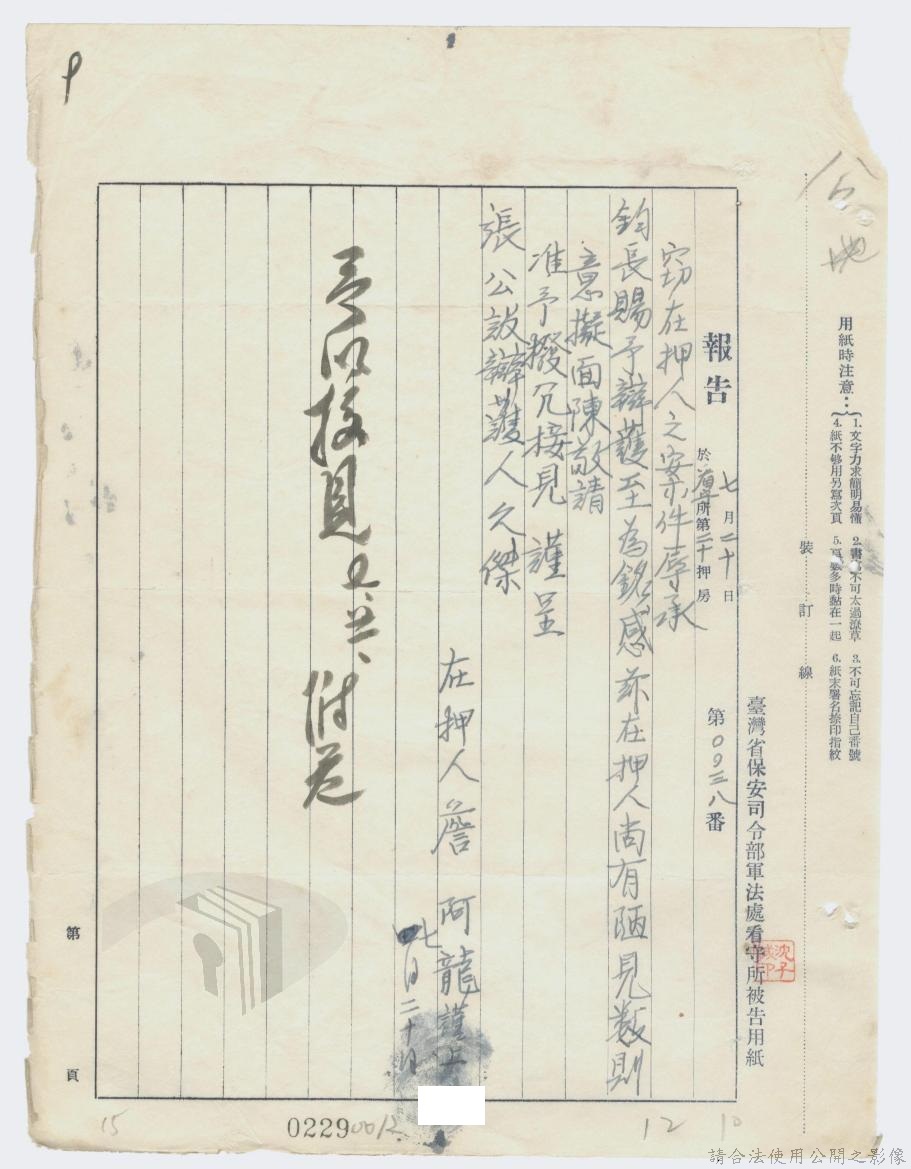 用紙時注意：
1. 文字力求簡明易懂
2. 書寫不可太過潦草
3. 不可忘記自己番號
4. 紙不够用另寫次頁
5. 頁數多時黏在一起
6. 紙末署名捺印指紋
裝訂線
臺灣省保安司令部軍法處看守所被告用紙
報告
七月二十日
於 所第二十押房
第0938番
竊在押人之案件辱承
鈞長賜予辯護至為銘感茲在押人尚有陋見數則
意擬面陳敬請
准予撥冗接見 謹呈
張公設辯護人久傑
在押人 詹阿龍謹上
七月二十日
予以接見
附卷
第 頁
0229
0012
15
12
10
請合法使用公開之影像